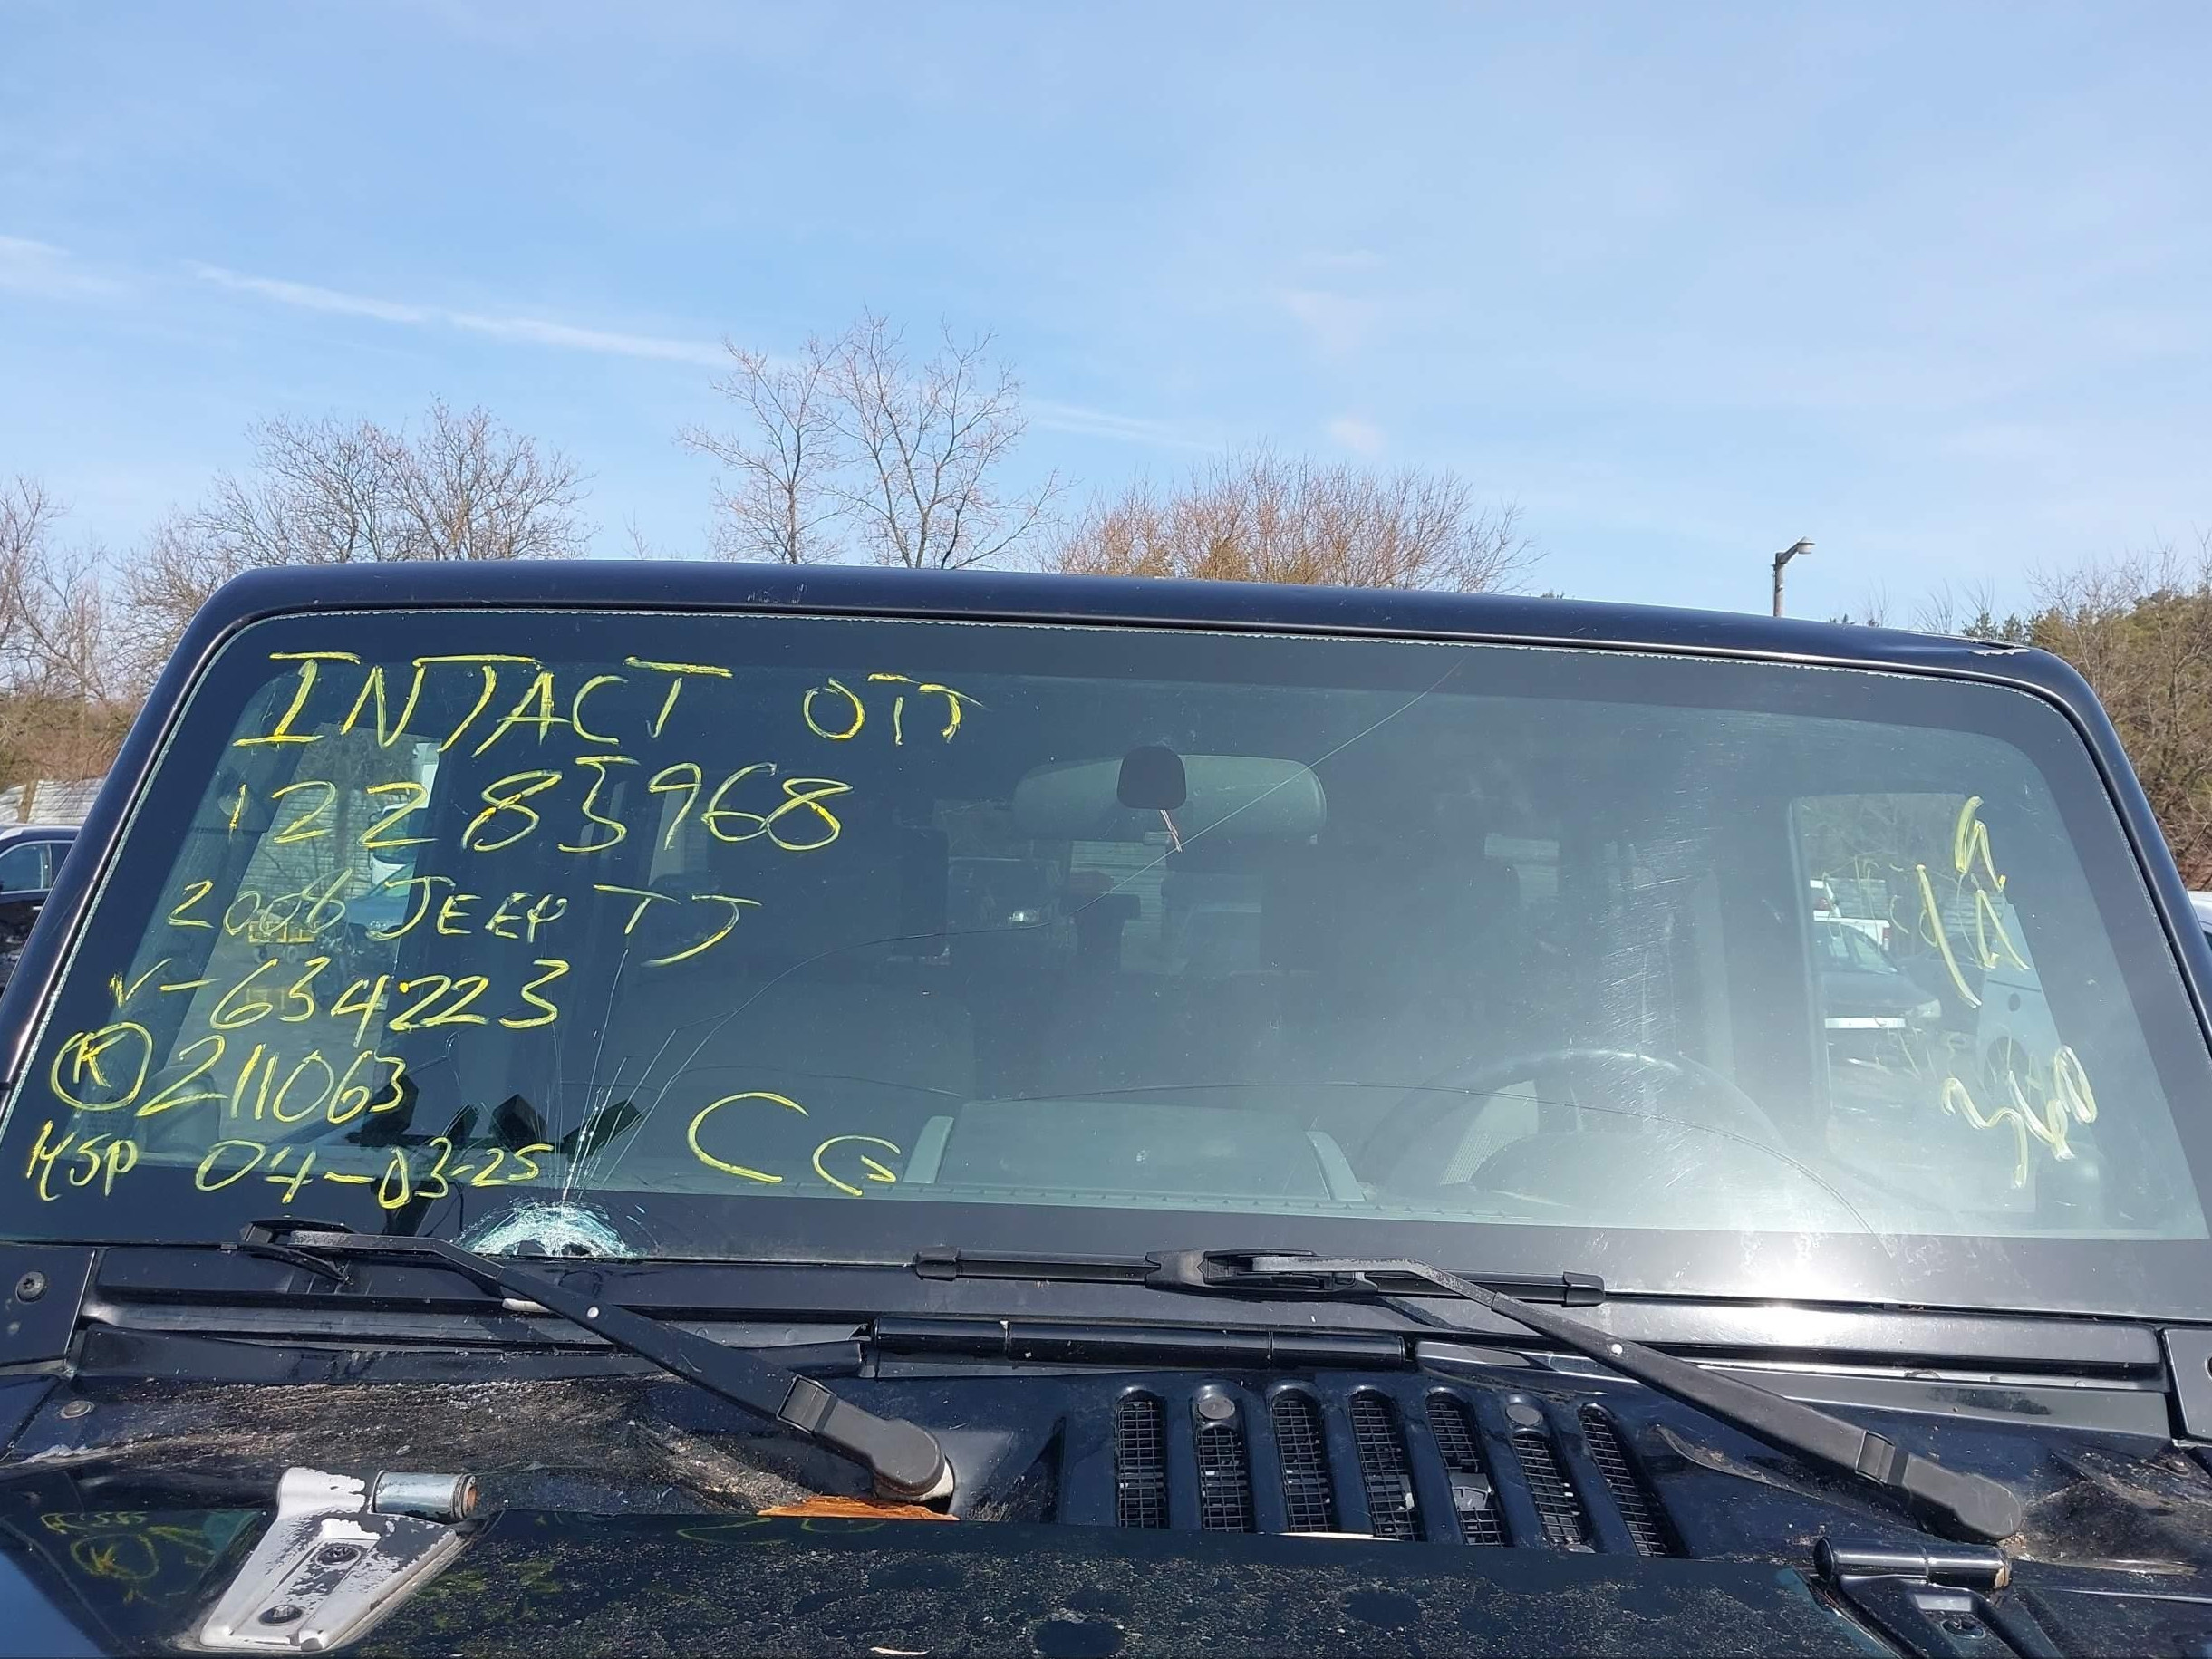 INTACT OTT
12283968
2006 JEEP TJ
V-634223
K 211063
HSP 04-03-25
CG